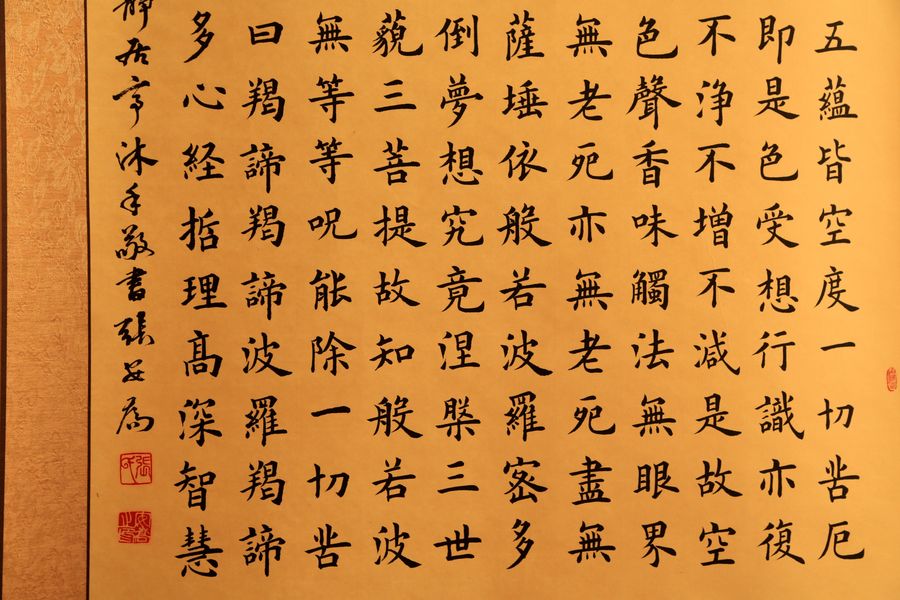 五蘊皆空度一切苦厄
即是色受想行識亦復
不浄不增不減是故空
色聲香味觸法無眼界
無老死亦無老死盡無
薩埵依般若波羅蜜多
倒夢想究竟涅槃三世
藐三菩提故知般若波
無等等呪能除一切苦
曰羯諦羯諦波羅羯諦
多心経哲理髙深智慧
居亭沐手敬書張